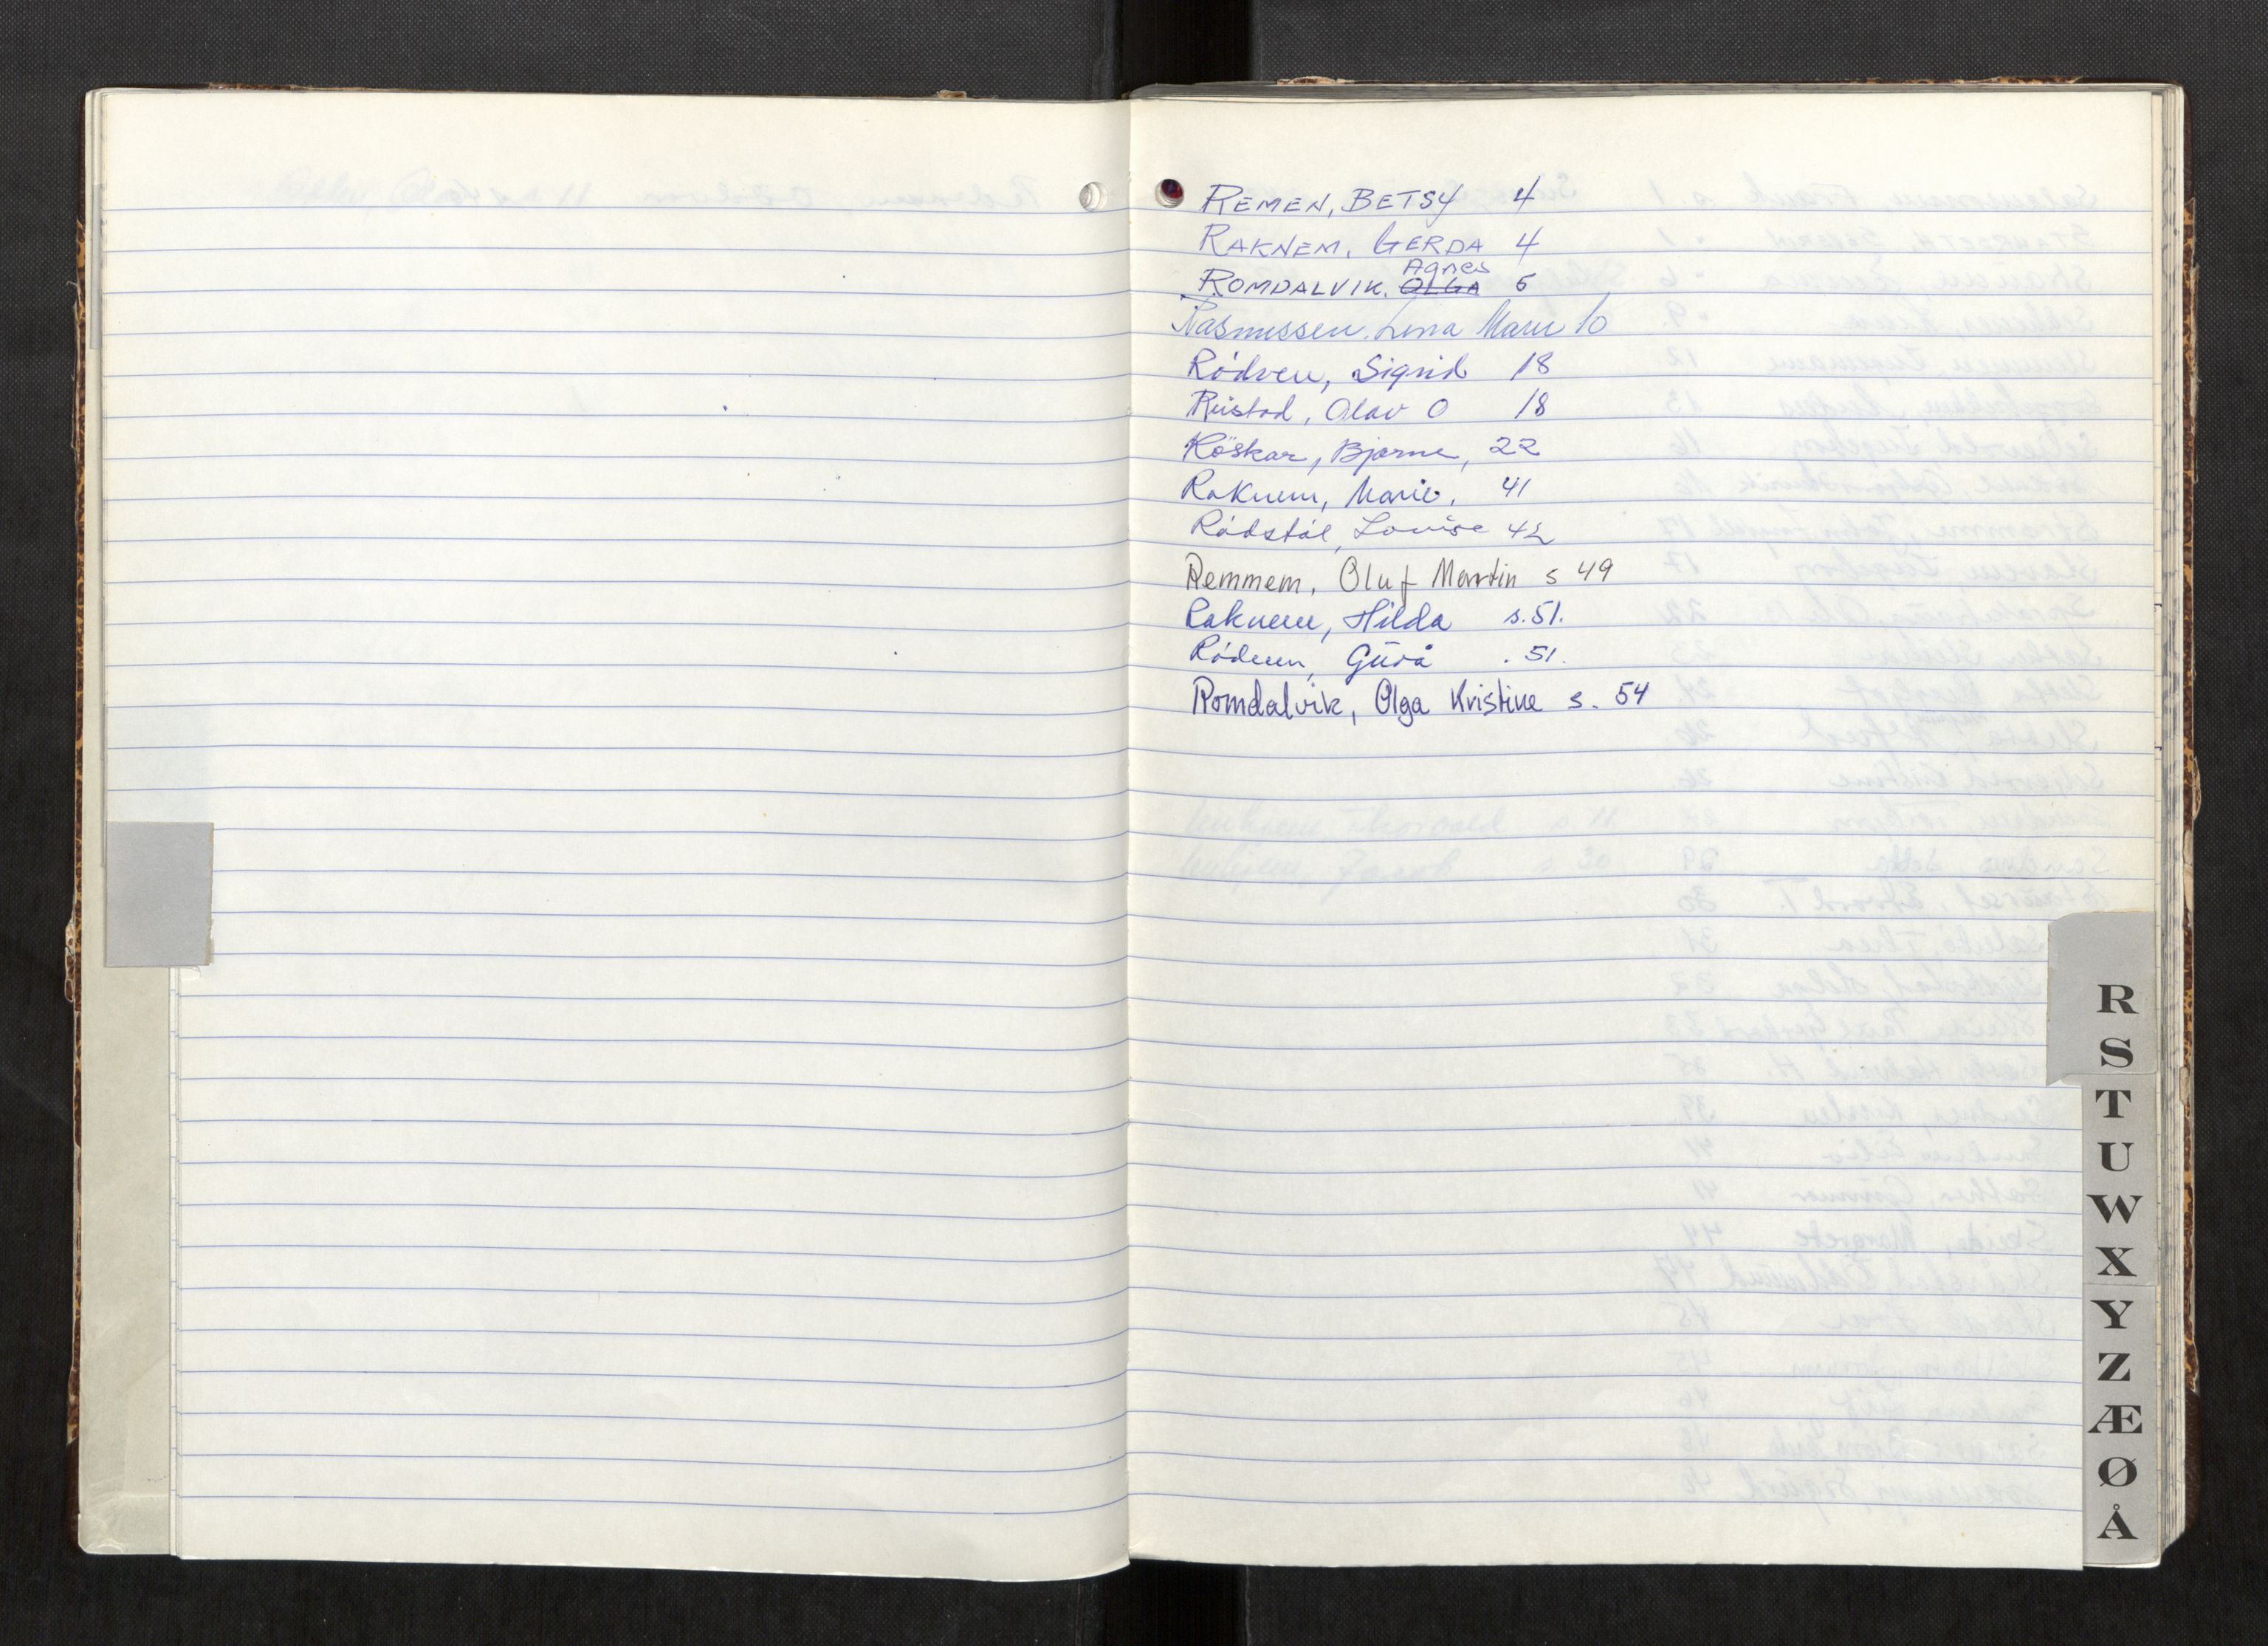 REMEN, BETSY 4
RAKNEM, GERDA 4
Agnes
ROMDALVIK, OLGA 5
Rasmussen, Lina Marie 10
Rödven, Sigrid 18
Rustad, Olav O 18
Röskar, Bjarne, 22
Raknem, Marie, 41
Rödstöl, Louise 42
Remmem, Oluf Martin s 49
Raknem, Hilda s. 51.
Rödven, Gurå . 51.
Romdalvik, Olga Kristine s. 54
R
S
T
U
W
X
Y
Z
Æ
Ø
Å